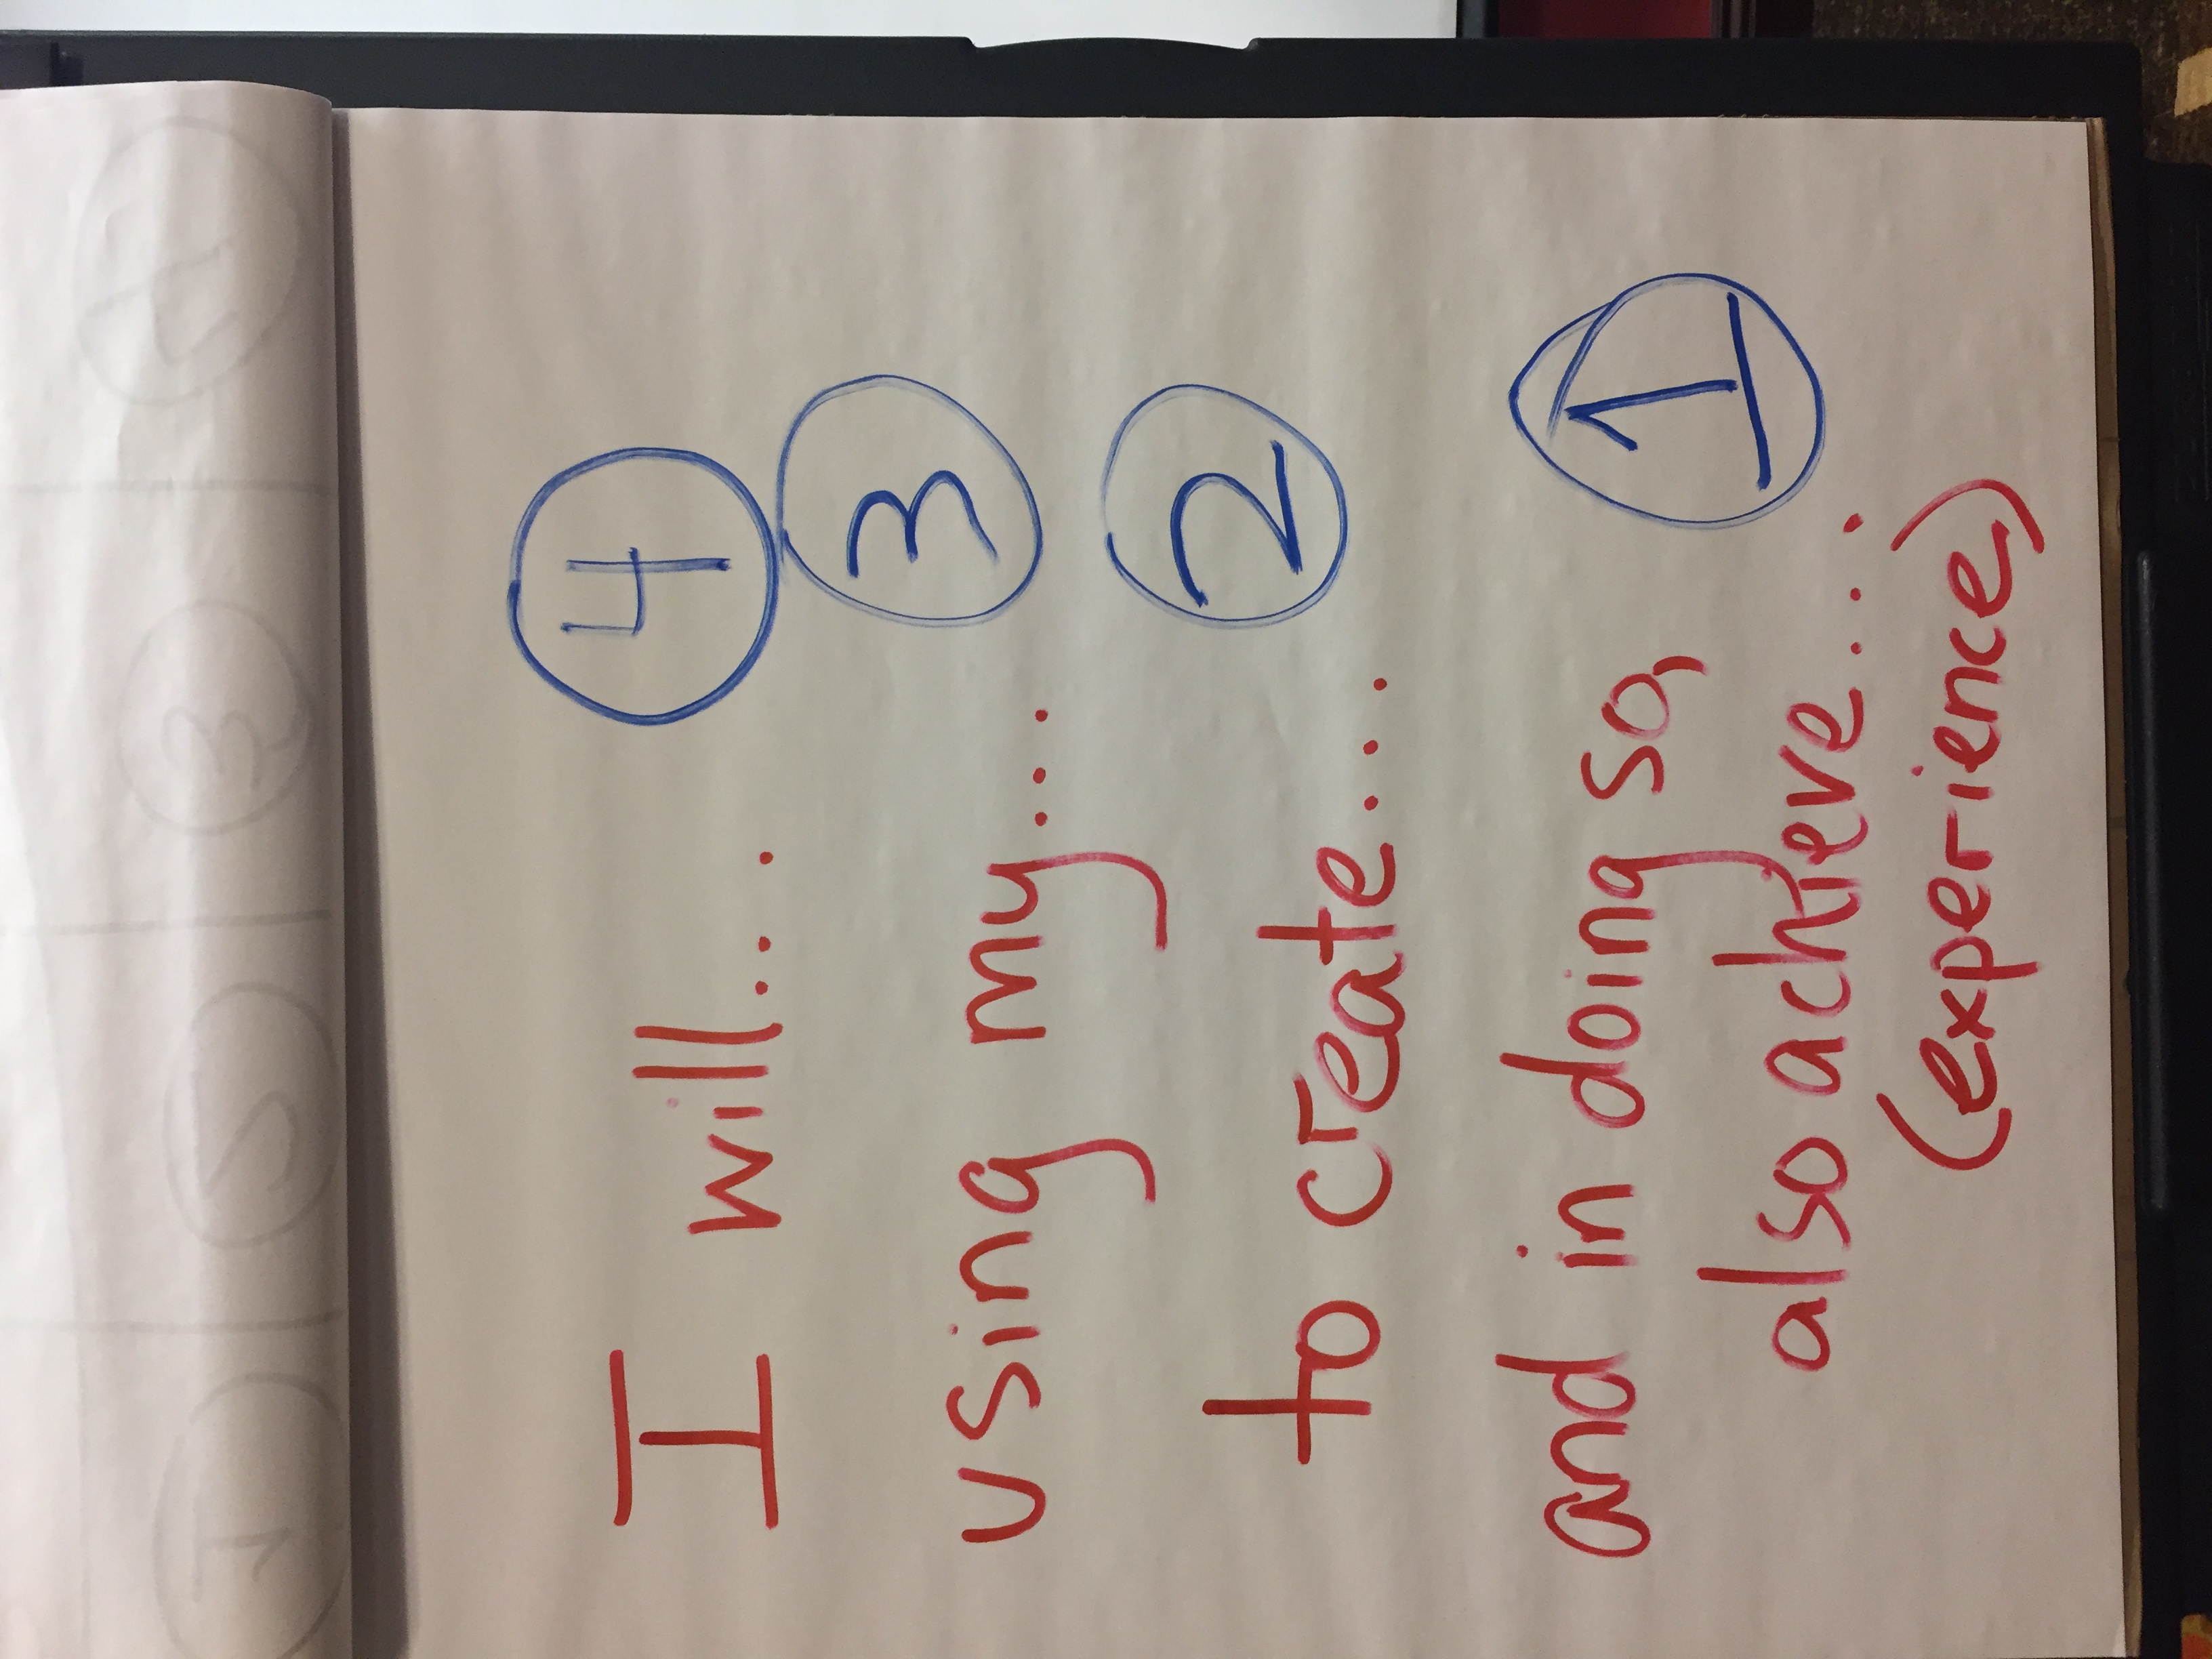 I will... 4
using my... 3
to create... 2
and in doing so,
also achieve... 1
(experience)